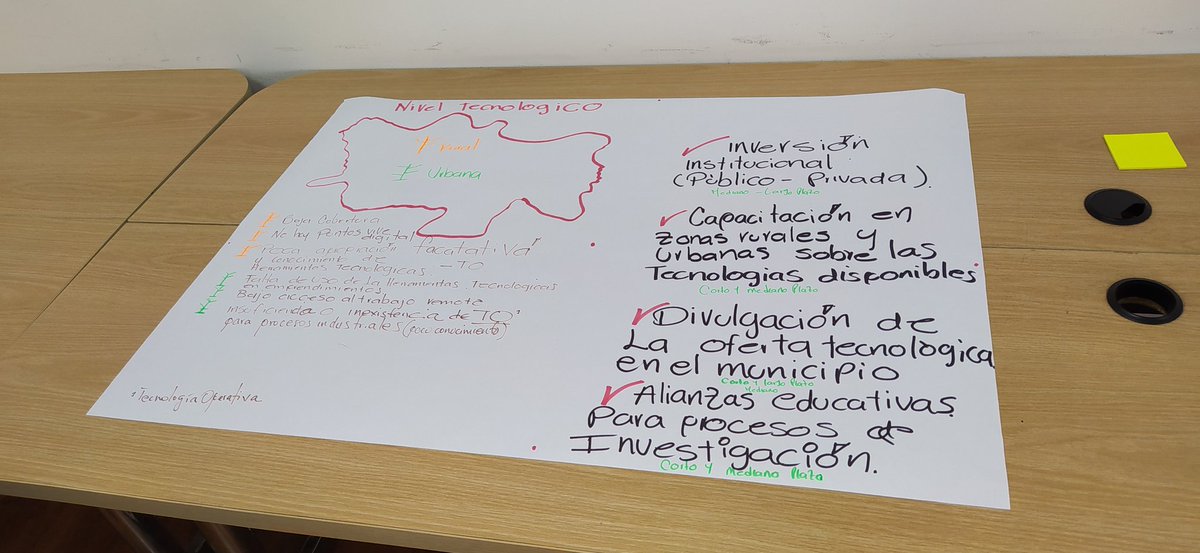 Nivel Tecnologico
Rural
Urbana
Baja Cobertura
No hay Puntos vive
digital
Poca apropiación "facatativa"
y conocimiento de
Herramientas Tecnologicas - TO
Falta de Uso de la Herramientas Tecnologicas
en emprendimientos
Bajo acceso al trabajo remoto
insuficiencia o inexistencia de TO
para procesos industriales (poco conocimiento)
Tecnología Operativa
✓ inversión
institucional
(Público - Privada).
Mediano - Largo Plazo
✓ Capacitación en
zonas rurales y
urbanas sobre las
Tecnologias disponibles
Corto y mediano Plazo
✓ Divulgación de
La oferta tecnologica
en el municipio
Corto y largo Plazo
Mediano
✓ Alianzas educativas
Para procesos de
Investigación.
Corto y mediano Plazo